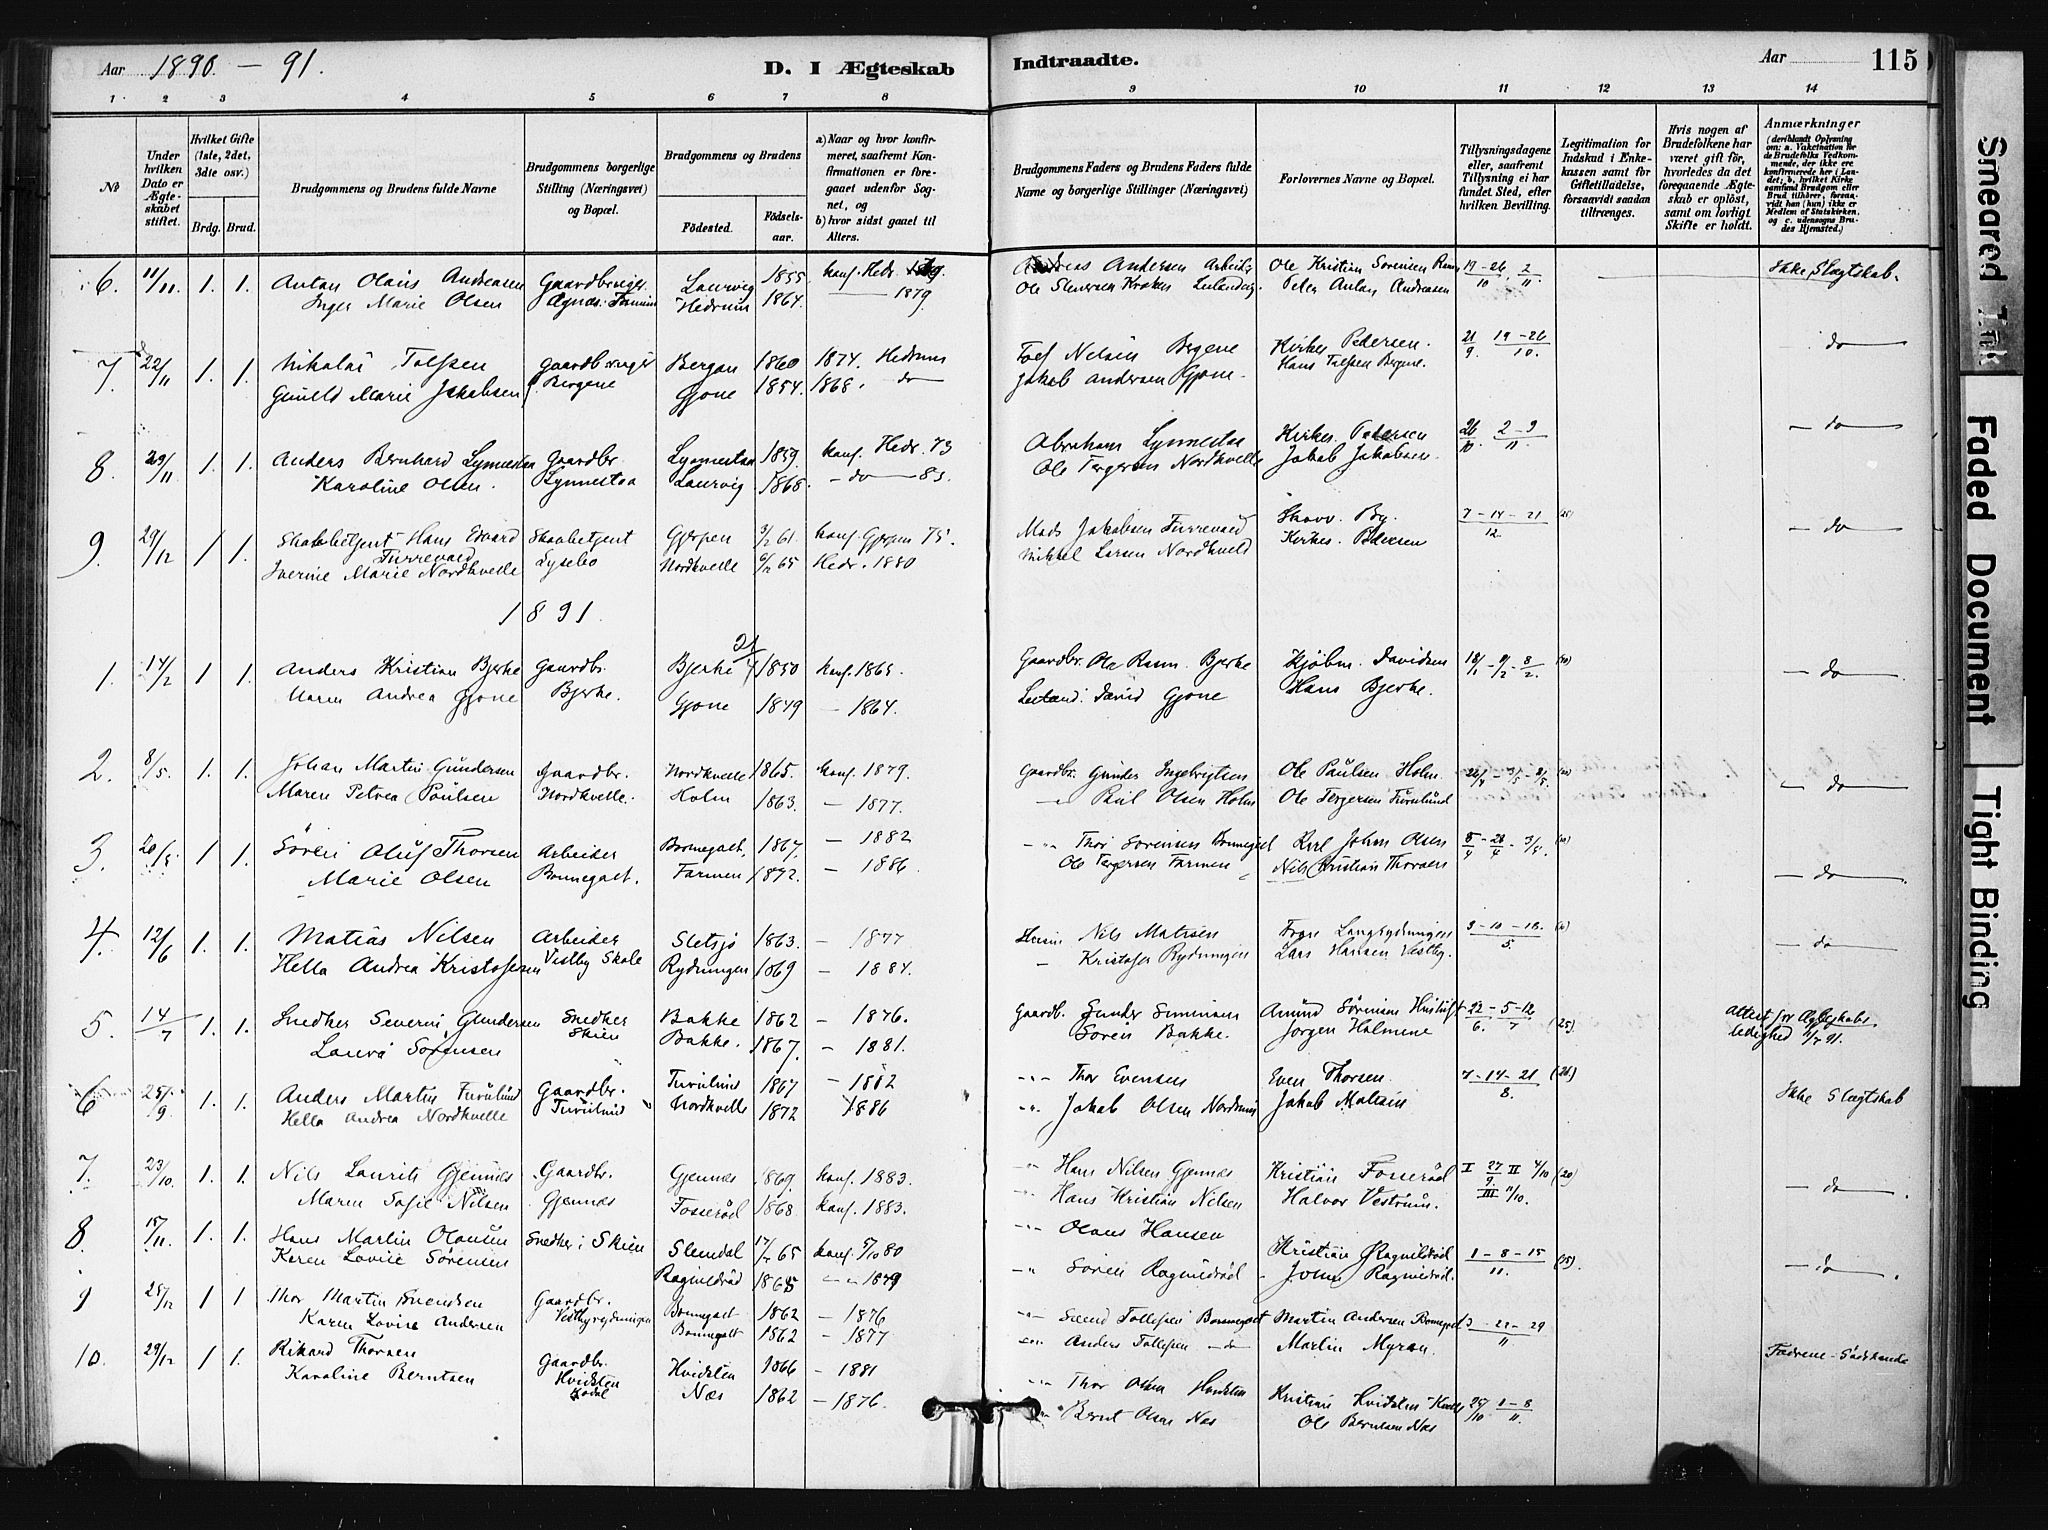 Aar 1890 - 91.
D. I Ægteskab Indtraadte.
Aar 115
1 2 3 4 5 6 7 8 9 10 11 12 13 14
No
Under hvilken Dato er Ægteskabet stiftet.
Hvilket Gifte (1ste, 2det, 3dte osv.)
Brdg. Brud.
Brudgommens og Brudens fulde Navne
Brudgommens borgerlige Stilling (Næringsvei) og Bopæl.
Brudgommens og Brudens
Fødested.
Fødselsaar.
a) Naar og hvor konfirmeret, saafremt Konfirmationen er foregaaet udenfor Sognet, og
b) hvor sidst gaaet til Alters.
Brudgommens Faders og Brudens Faders fulde Navne og borgerlige Stillinger (Næringsvei)
Forlovernes Navne og Bopæl.
Tillysningsdagene eller, saafremt Tillysning ei har fundet Sted, efter hvilken Bevilling.
Legitimation for Indskud i Enkekassen samt for Giftetilladelse, forsaavidt saadan tiltrænges.
Hvis nogen af Brudefolkene har været gift før, hvorledes da det foregaaende Ægteskab er opløst, samt om lovligt Skifte er holdt.
Anmærkninger
(deriblandt Oplysning om: a. Vaksination for de Brudefolks Vedkommende, der ikke ere konfirmerede her i Landet; b. hvilket Kirkesamfund Brudgom eller Brud tilhører, forsaavidt han (hun) ikke er Medlem af Statskirken, og c. udensogns Brudes Hjemsted.)
6. 11/11 1. 1. Anton Olaus Andreasen Gaardbruger Laurvig 1855 konf. Hedr. Andreas Andersen Arbeider Ole Kristian Sørensen 19-26/10 2/11 Ikke Slægtskab.
Inger Marie Olsen Hedrum 1864. — 1879 Peter Anton Andreasen
7. 22/11 1. 1. Nikolai Tolfsen Gaardbruger Bergan 1860 1874. Hedrum Nelsen Bergene Kirkes. Pedersen. 21/9. 19-26/10. do
Gunild Marie Jakobsen Bergene Gjone 1854. 1868. do Jakob Andersen Gjone. Hans Tolfsen Bergene.
8. 29/11 1. 1. Anders Bernhard Lynnestaa Gaardbr. Lynnestaa 1859. konf. Hedr. 73 Abraham Lynnestaa Kirkes. Pedersen 26/10. 2-9/11 do
Karoline Olsen. Lynnestaa Laurvig 1868. - do - 83. Ole Tergersen Nordkvelle Jakob Jakobsen.
9. 29/12 1 1. Hans Edvard Skovbetjent Gjerpen 3/2 61. konf. Gjerpen 75. Mads Jakobsen Furrevald Skovv. By. 7-14-21/12 (25) - do
Furrevald
Iverine Marie Nordkvelle Lysebo Nordkvelle 6/12 65 Hedr. 1880 Mikkel Larsen Nordkveld Kirkes. Pedersen
1891
1. 14/2 1 1. Anders Kristian Bjerke Gaardbr. Bjerke 21/4 1850 konf. 1865. Gaardbr. Ole Rasm. Bjerke Kjøbm. Davidsen 18/1-9/2-8/2. - do
Maren Andrea Gjone Bjerke. Gjone 1849 — 1864. David Gjone Hans Bjerke.
2. 8/5. 1. 1. Johan Martin Gundersen Gaardbr. Nordkvelle 1865. konf. 1879. Gaardbr. Gunder Ingebrigtsen Ole Paulsen Holm. 26/4-3/5-8/5. - do
Maren Petrea Paulsen Nordkvelle. Holm 1863. — 1877. Paul Olsen Holm Ole Tergersen Furulund
3. 20/5. 1 1. Søren Oluf Thorsen Arbeider Bonnegolt. 1867. — 1882 Thor Sørensen Bonnegolt Karl Johan Olsen
Marie Olsen Bonnegolt. Farmen — 1886. Ole Tergersen Farmen Nils Kristian Thorsen - do
4. 12/6 1. 1. Matias Nilsen Arbeider Sletsjø 1863. — 1877 Nils Matisen Langrydningen 3-10-18./5. - do
Hella Andrea Kristofersen Vestby Skole Rydningen 1869 — 1884. Kristofer Rydningen Lars Hansen Vestby.
5. 14/7 1. 1. Snedker Severin Gundersen Snedker Bakke 1862 — 1876. Gaardb. Gunder Simensen Amund Sørensen 22/6.-5-12/7 (25) Attest for Ægteskabsledighed
Laura Sørensen Skien Bakke. 1867. — 1881. Søren Bakke. Jørgen Halmene 91.
6 25/9. 1. 1. Anders Martin Furulund Gaardbr. Furulund 1867 — 1882 Thor Evensen Even Thorsen. 7-14-21/8. (26) Ikke Slægtskab
Hella Andrea Nordkvelle Furulund Nordkvelle 1872 1886 Jakob Olsen Jakob Matisen
7. 23/10. 1. 1. Nils Laurits Gjennes Gaardbr. Gjennes 1869. konf. 1883. Hans Nilsen Gjennes Kristian Fosserød I 27/9. II 4/10 (20)
Maren Sofie Nilsen Gjennes Fosserød 1868 konf. 1883. Hans Kristian Nilsen Halvor Vestrum. III 11/10. - do
8. 15/11. 1. 1. Hans Martin Olausen Snedker i Skien Slemdal 65 konf. 5/10 80 Olaus Hansen Kristian Ragnildrød 1-8-15/11. (15)
Karen Lovise Sørensen Ragnildrød 1865 " " 1879 Søren Ragnildrød Ragnildrød. - do
9 25/12 1 1 Thor Martin Svendsen Gaardbr. Bonnegolt 1862 — 1876 Svend Tollefsen Bonnegolt Martin Andersen Bonnegolt 3-22-29/11
Karen Lovise Andersen Vestbyrydningen Bonnegolt 1862 — 1877 Anders Tollefsen do Martin Myran.
10. 29/12 1 1. Rikard Thorsen Gaardbr. Hvidsten 1866 — 1881 Thor Olsen Hvidsten Kristian Hvidsten Kodal 25/10 1-8/11. Fædrene-Sødskende
Karoline Berntsen Hvidsten Kodal Næs 1862 — 1876. Bernt Olsen Næs Ole Berntsen Næs
Smeared Ink
Faded Document
Tight Binding